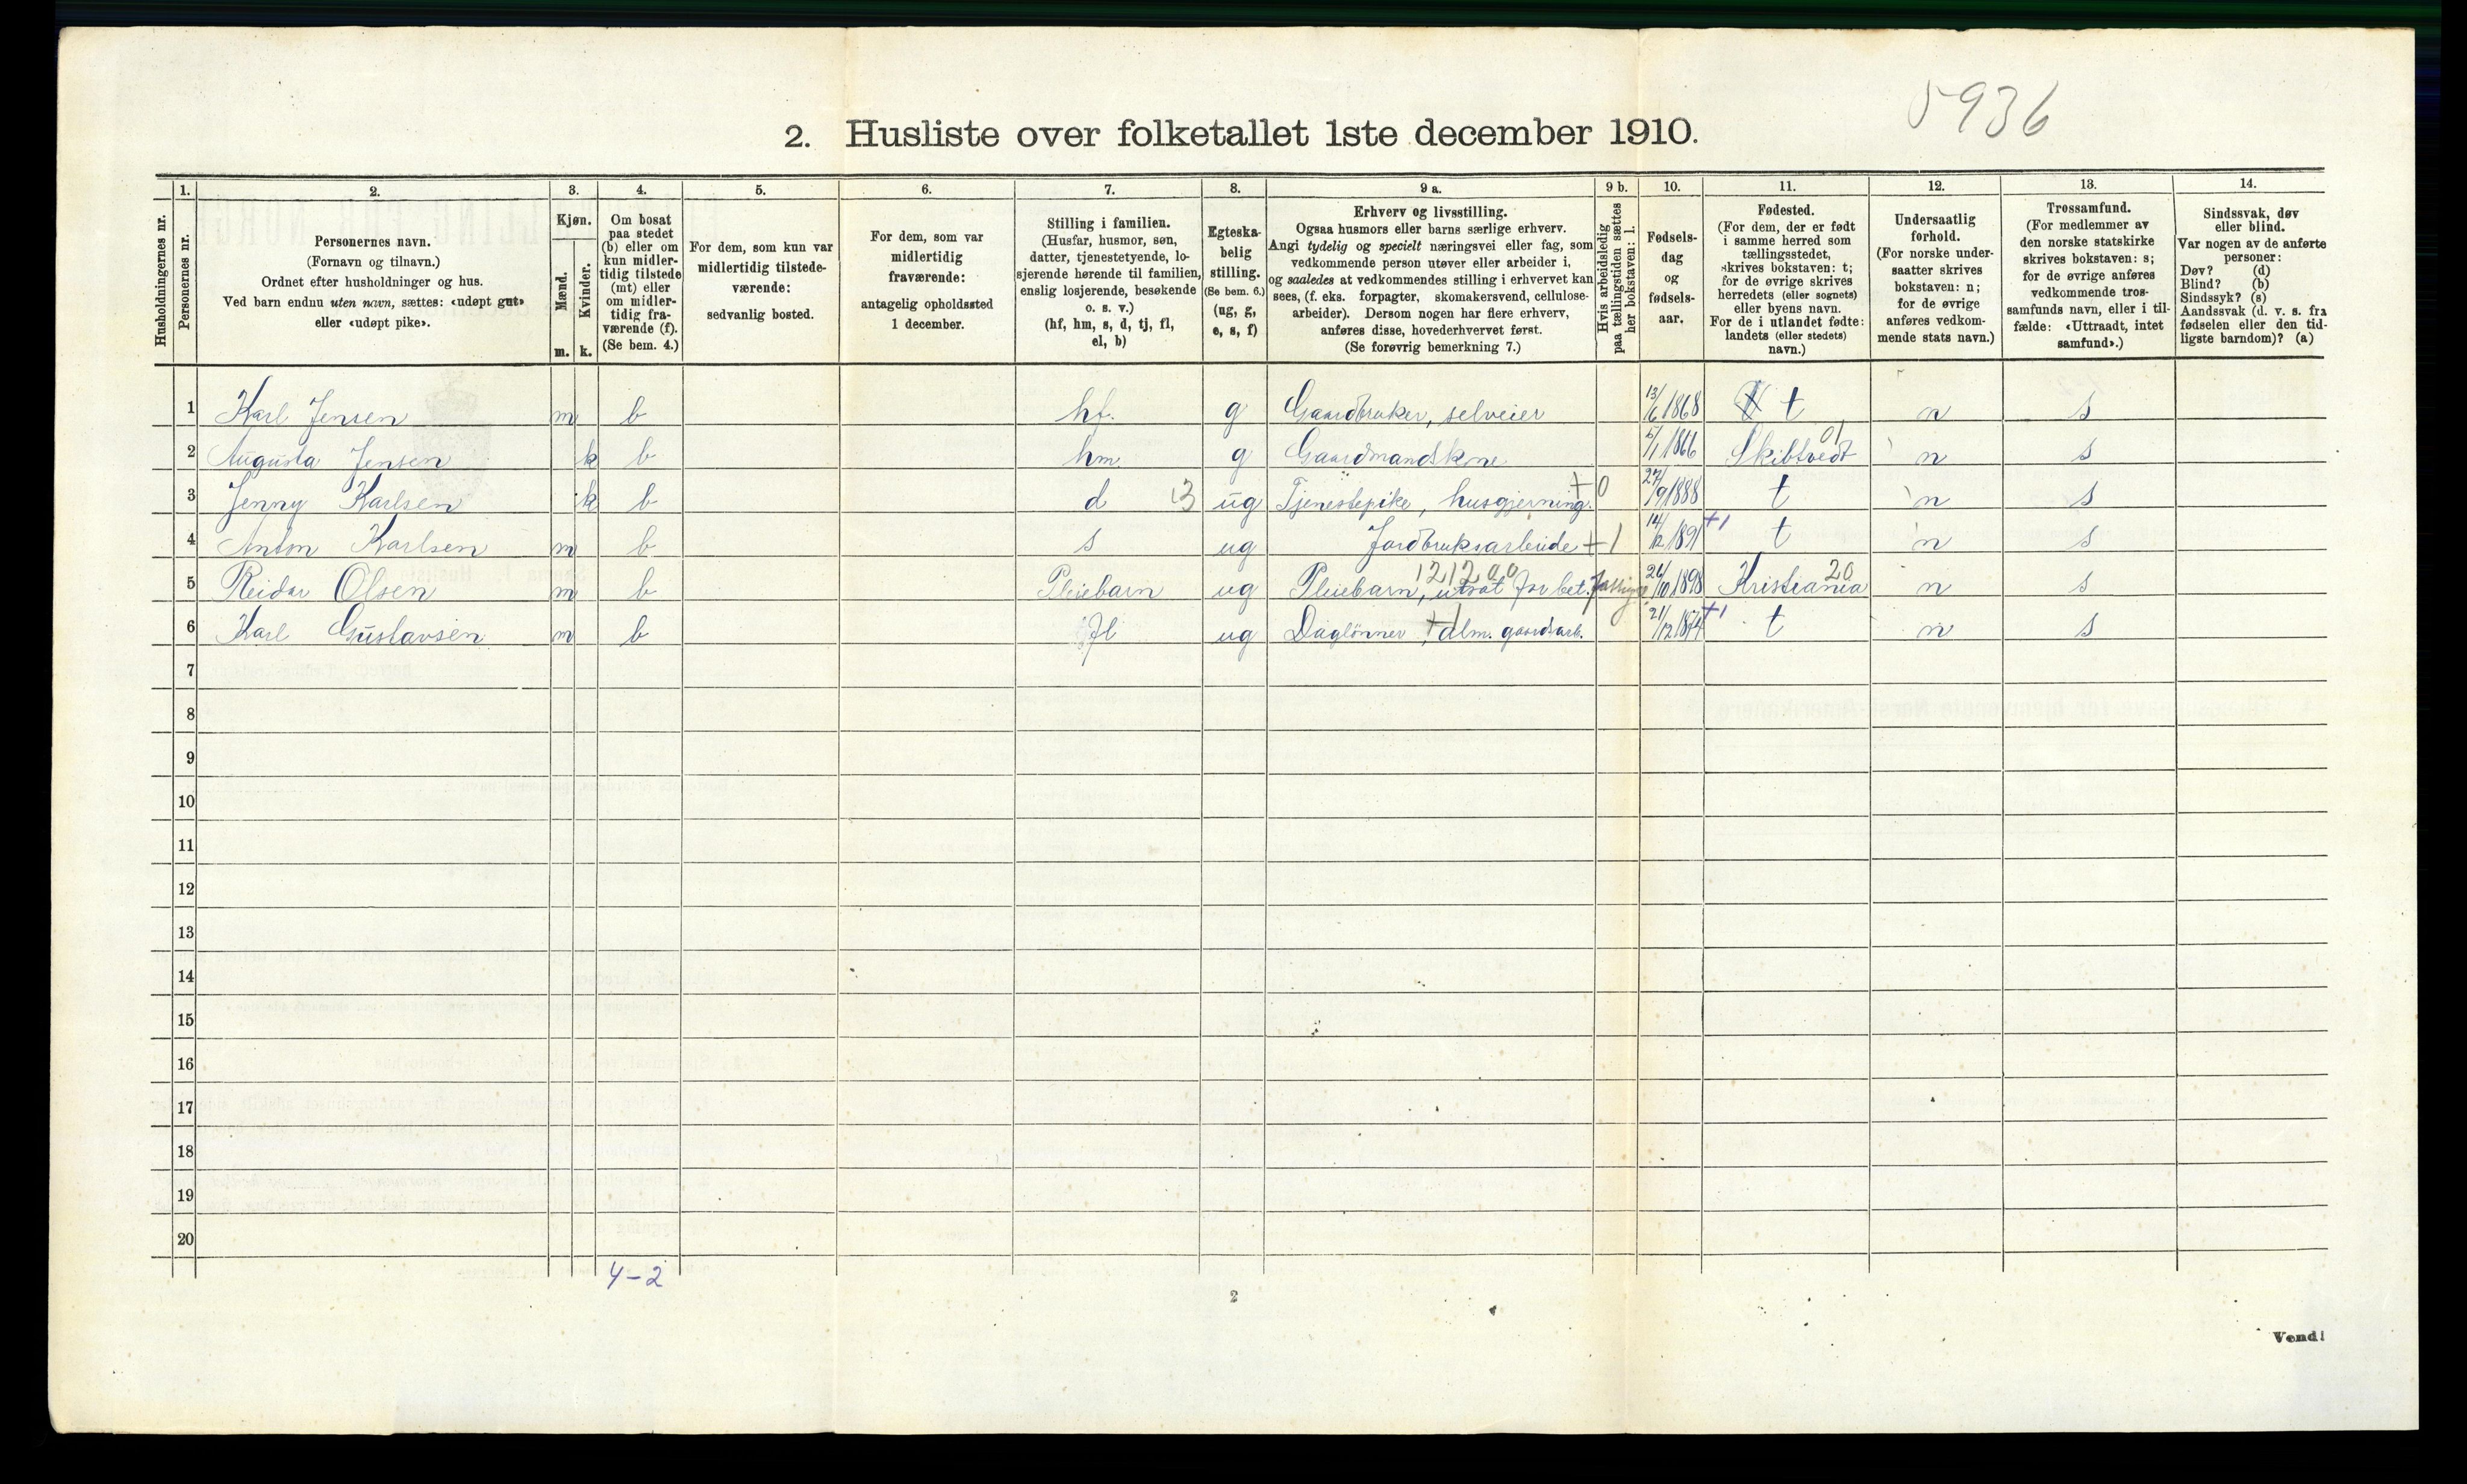 5936
2. Husliste over folketallet 1ste december 1910.
1. 2. 3. 4. 5. 6. 7. 8. 9 a. 9 b. 10. 11. 12. 13. 14.
Husholdningernes nr.
Personernes nr.
Personernes navn.
(Fornavn og tilnavn.)
Ordnet efter husholdninger og hus.
Ved barn endnu uten navn, sættes: «udøpt gut»
eller «udøpt pike».
Kjøn.
Mænd.
Kvinder.
m. k.
Om bosat
paa stedet
(b) eller om
kun midler-
tidig tilstede
(mt) eller
om midler-
tidig fra-
værende (f).
(Se bem. 4.)
For dem, som kun var
midlertidig tilstede-
værende:
sedvanlig bosted.
For dem, som var
midlertidig
fraværende:
antagelig opholdssted
1 december.
Stilling i familien.
(Husfar, husmor, søn,
datter, tjenestetyende, lo-
sjerende hørende til familien,
enslig losjerende, besøkende
o. s. v.)
(hf, hm, s, d, tj, fl,
el, b)
Egteska-
belig
stilling.
(Se bem. 6.)
(ug, g,
e, s, f)
Erhverv og livsstilling.
Ogsaa husmors eller barns særlige erhverv.
Angi tydelig og specielt næringsvei eller fag, som
vedkommende person utøver eller arbeider i,
og saaledes at vedkommendes stilling i erhvervet kan
sees, (f. eks. forpagter, skomakersvend, cellulose-
arbeider). Dersom nogen har flere erhverv,
anføres disse, hovederhvervet først.
(Se forøvrig bemerkning 7.)
Hvis arbeidsledig
paa tællingstiden sættes
her bokstaven: l.
Fødsels-
dag
og
fødsels-
aar.
Fødested.
(For dem, der er født
i samme herred som
tællingsstedet,
skrives bokstaven: t;
for de øvrige skrives
herredets (eller sognets)
eller byens navn.
For de i utlandet fødte:
landets (eller stedets)
navn.)
Undersaatlig
forhold.
(For norske under-
saatter skrives
bokstaven: n;
for de øvrige
anføres vedkom-
mende stats navn.)
Trossamfund.
(For medlemmer av
den norske statskirke
skrives bokstaven: s;
for de øvrige anføres
vedkommende tros-
samfunds navn, eller i til-
fælde: «Uttraadt, intet
samfund».)
Sindssvak, døv
eller blind.
Var nogen av de anførte
personer:
Døv? (d)
Blind? (b)
Sindssyk? (s)
Aandssvak (d. v. s. fra
fødselen eller den tid-
ligste barndom)? (a)
1 Karl Jensen m b hf. g Gaardbruker, selveier 13/6 1868 t n s
2 Augusta Jensen k b hm g Gaardmandskone 5/1 1866 Skibtvedt 01 n s
3 Jenny Karlsen k b d 3 ug Tjenestepike, husgjerning. +0 27/9 1888 t n s
4 Anton Karlsen m b s ug Jordbruksarbeide +1 14/12 1891 +1 t n s
5 Reidar Olsen m b Pleiebarn ug Pleiebarn, utsat for bet. 121200 26/10 1898 Kristiania 20 n s
6 Karl Gustavsen m b fl ug Daglønner, alm. gaardsarb. 21/12 1874 +1 t n s
7
8
9
10
11
12
13
14
15
16
17
18
19
20
4-2
2
Vend!